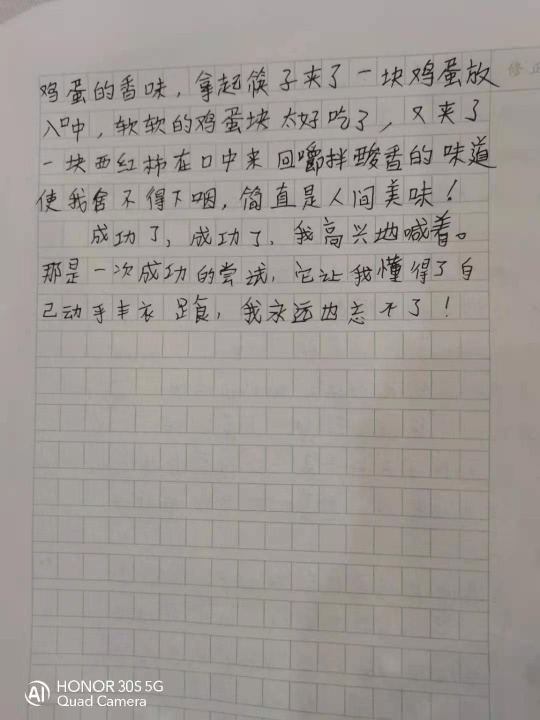 鸡蛋的香味，拿起筷子夹了一块鸡蛋放
入口中，软软的鸡蛋块太好吃了，又夹了
一块西红柿在口中来回嚼拌酸香的味道
使我舍不得下咽，简直是人间美味！
成功了，成功了，我高兴地喊着。
那是一次成功的尝试，它让我懂得了自
己动手丰衣足食，我永远也忘不了！
AI HONOR 30S 5G
Quad Camera